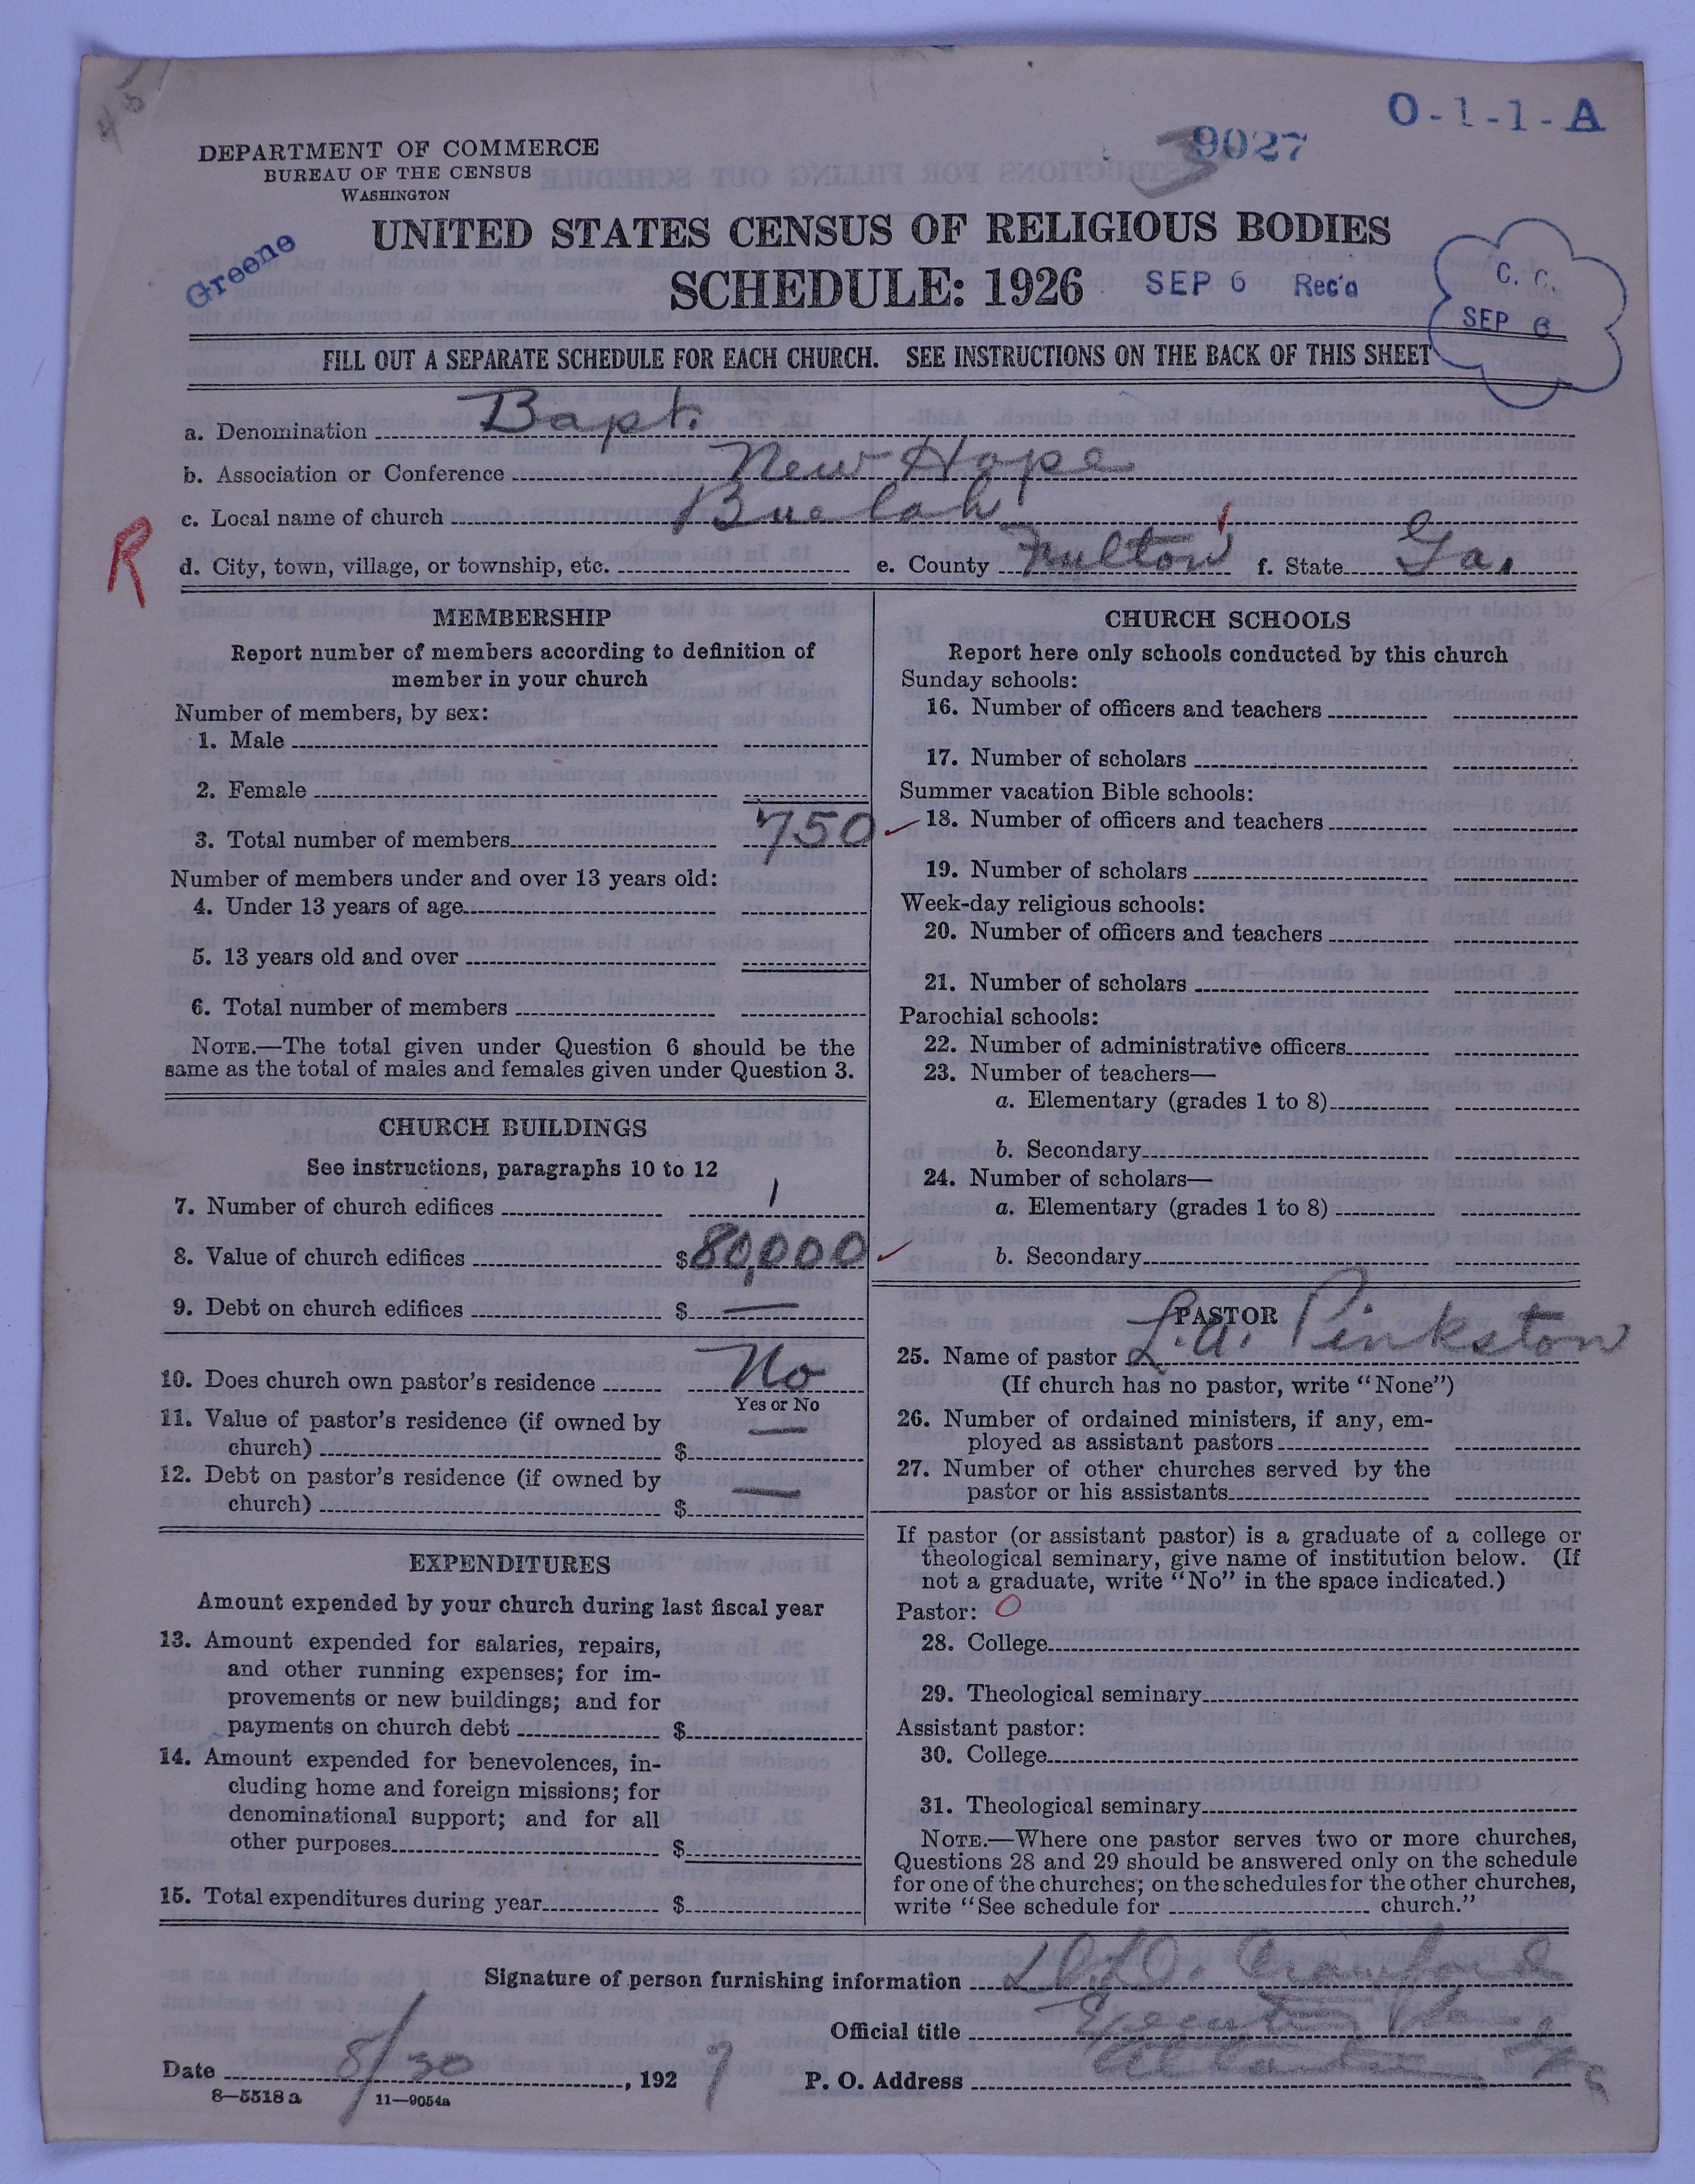 45
O-1-1-A
3
9027
DEPARTMENT OF COMMERCE
BUREAU OF THE CENSUS
WASHINGTON
Greene
UNITED STATES CENSUS OF RELIGIOUS BODIES
SCHEDULE: 1926
SEP 6 Rec'd
C. C.
SEP 6
FILL OUT A SEPARATE SCHEDULE FOR EACH CHURCH. SEE INSTRUCTIONS ON THE BACK OF THIS SHEET
a. Denomination Bapt.
b. Association or Conference New Hope
c. Local name of church Buelah
R
d. City, town, village, or township, etc. e. County Fulton f. State Ga.
MEMBERSHIP
Report number of members according to definition of
member in your church
Number of members, by sex:
1. Male
2. Female
3. Total number of members 750
Number of members under and over 13 years old:
4. Under 13 years of age
5. 13 years old and over
6. Total number of members
NOTE.—The total given under Question 6 should be the
same as the total of males and females given under Question 3.
CHURCH BUILDINGS
See instructions, paragraphs 10 to 12
7. Number of church edifices 1
8. Value of church edifices $80,000
9. Debt on church edifices $ —
10. Does church own pastor's residence No
Yes or No
11. Value of pastor's residence (if owned by
church) $ —
12. Debt on pastor's residence (if owned by
church) $ —
EXPENDITURES
Amount expended by your church during last fiscal year
13. Amount expended for salaries, repairs,
and other running expenses; for im-
provements or new buildings; and for
payments on church debt $
14. Amount expended for benevolences, in-
cluding home and foreign missions; for
denominational support; and for all
other purposes $
15. Total expenditures during year $
CHURCH SCHOOLS
Report here only schools conducted by this church
Sunday schools:
16. Number of officers and teachers
17. Number of scholars
Summer vacation Bible schools:
18. Number of officers and teachers
19. Number of scholars
Week-day religious schools:
20. Number of officers and teachers
21. Number of scholars
Parochial schools:
22. Number of administrative officers
23. Number of teachers—
a. Elementary (grades 1 to 8)
b. Secondary
24. Number of scholars—
a. Elementary (grades 1 to 8)
b. Secondary
PASTOR
25. Name of pastor L. A. Pinkston
(If church has no pastor, write "None")
26. Number of ordained ministers, if any, em-
ployed as assistant pastors
27. Number of other churches served by the
pastor or his assistants
If pastor (or assistant pastor) is a graduate of a college or
theological seminary, give name of institution below. (If
not a graduate, write "No" in the space indicated.)
Pastor: O
28. College
29. Theological seminary
Assistant pastor:
30. College
31. Theological seminary
NOTE.—Where one pastor serves two or more churches,
Questions 28 and 29 should be answered only on the schedule
for one of the churches; on the schedules for the other churches,
write "See schedule for church."
Signature of person furnishing information D. D. Crawford
Official title Executive
Date 8/30, 1927 P. O. Address Atlanta Ga
8—5518 a 11—9054a